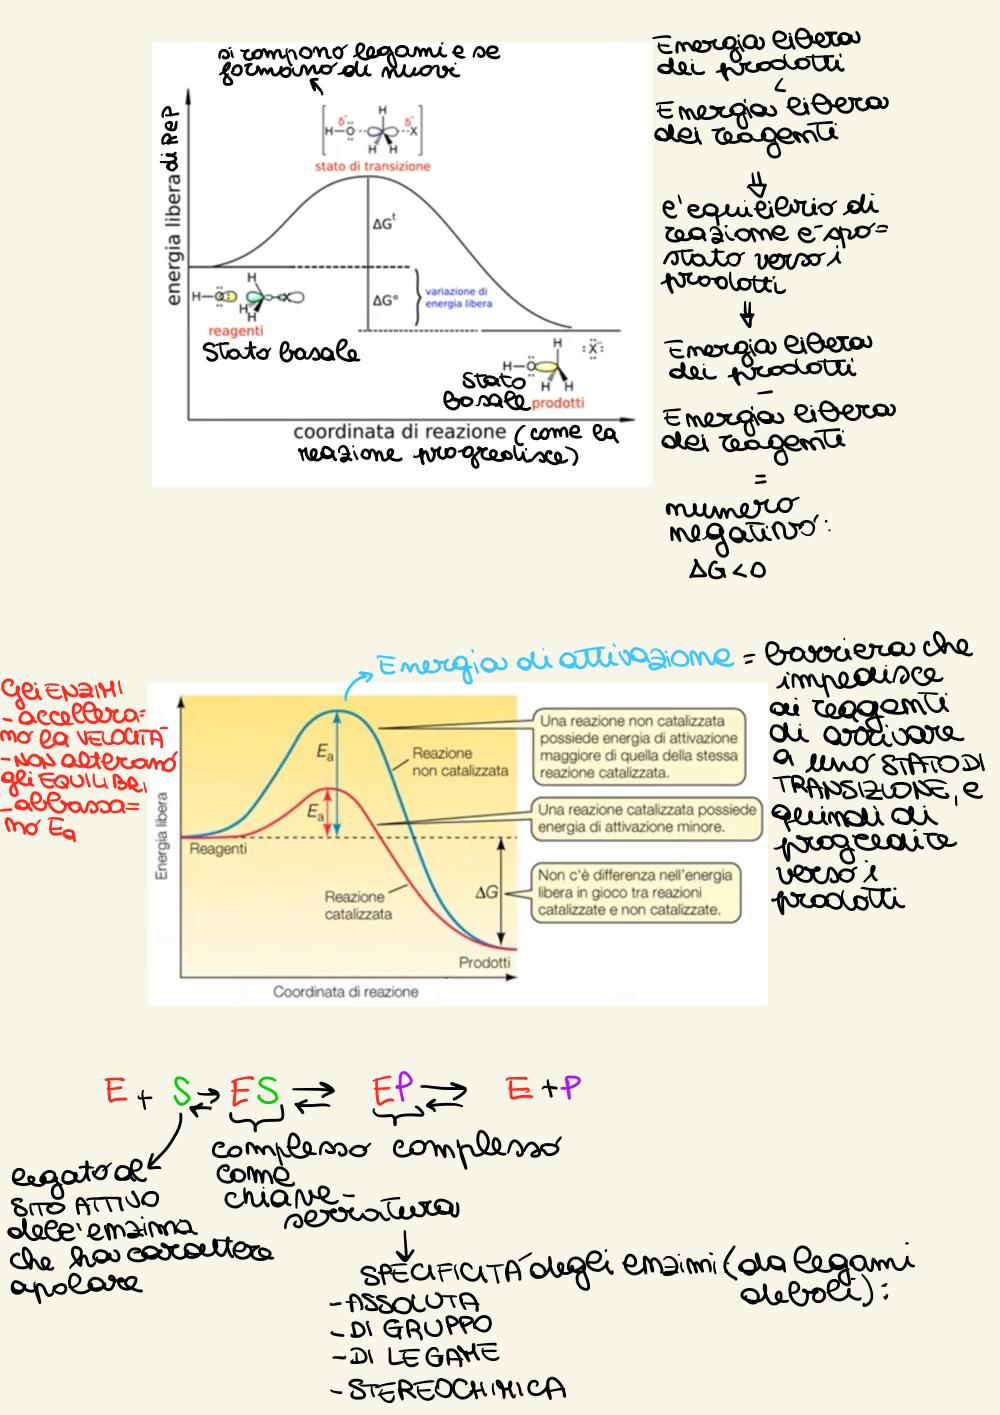 si rompono legami e se
formano di nuovi
[H–O ··· X]
δ⁻ δ⁻
H
H H
stato di transizione
energia libera di R e P
ΔG‡
ΔG°
variazione di
energia libera
H–O
H
H H
X
reagenti
Stato basale
H–O
H
H H
:X:
Stato
basale prodotti
coordinata di reazione (come la
reazione progredisce)
Energia libera
dei prodotti
<
Energia libera
dei reagenti
⇓
l'equilibrio di
reazione è spo=
stato verso i
prodotti
⇓
Energia libera
dei prodotti
–
Energia libera
dei reagenti
=
numero
negativo:
ΔG<0
Energia di attivazione = barriera che
impedisce
ai reagenti
di arrivare
a uno STATO DI
TRANSIZIONE, e
quindi di
progredire
verso i
prodotti
Gli ENZIMI
- accellera=
no la VELOCITÀ
- NON alterano
gli EQUILIBRI
- abbassa=
no Ea
Energia libera
Ea
Ea
Reazione
non catalizzata
Reagenti
Reazione
catalizzata
ΔG
Prodotti
Coordinata di reazione
Una reazione non catalizzata
possiede energia di attivazione
maggiore di quella della stessa
reazione catalizzata.
Una reazione catalizzata possiede
energia di attivazione minore.
Non c'è differenza nell'energia
libera in gioco tra reazioni
catalizzate e non catalizzate.
E + S ⇌ ES ⇌ EP ⇌ E + P
complesso complesso
come
chiave-
serratura
legato al
SITO ATTIVO
dell'enzima
che ha carattere
apolare
SPECIFICITÀ degli enzimi (da legami
deboli):
- ASSOLUTA
- DI GRUPPO
- DI LEGAME
- STEREOCHIMICA